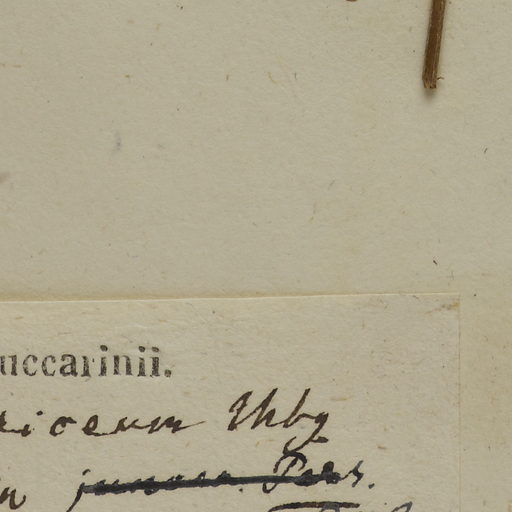 uccarinii.
riceum Thbg
juncea. Pers.